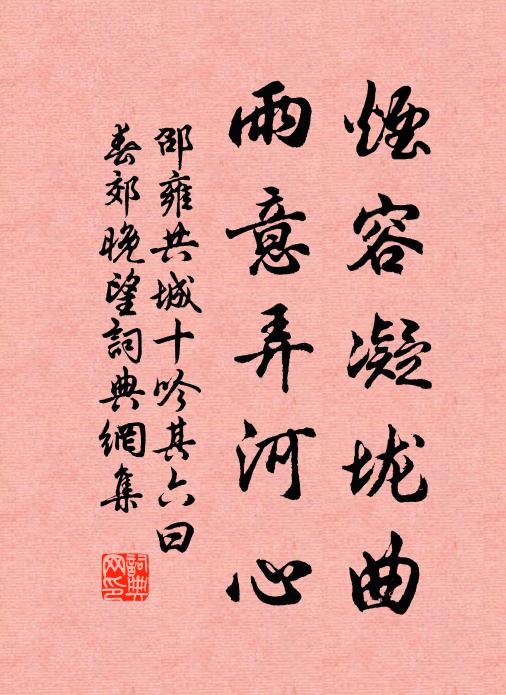 煙容凝垅曲
雨意弄河心
邵雍共城十吟其六曰
春郊晚望詞典網集
詞典網印